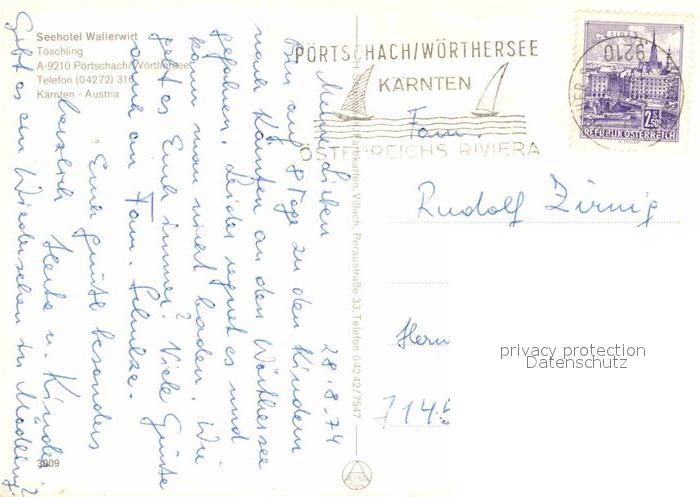 Seehotel Wallerwirt
Töschling
A-9210 Pörtschach/Wörthersee
Telefon (04272) 316
Kärnten - Austria
PÖRTSCHACH/WÖRTHERSEE
KÄRNTEN
ÖSTERREICHS RIVIERA
9210
2.50
REPUBLIK ÖSTERREICH
28.8.74
Meine Lieben
Bin auf 8 Tage zu den Kindern
nach Kärnten an den Wörthersee
gefahren. Leider regnet es und
kann man nicht baden. Wie
geht es Euch immer? Viele Grüße
auch an Fam. Schulze.
Euch grüßt besonders
herzlich Herta u. Kinder
Gibt es ein Wiedersehen in Mödling?
Karten, Villach, Peraustraße 33, Telefon 04242/7647
Fam.
Rudolf Zirnig
Herrn
7145
privacy protection
Datenschutz
3009